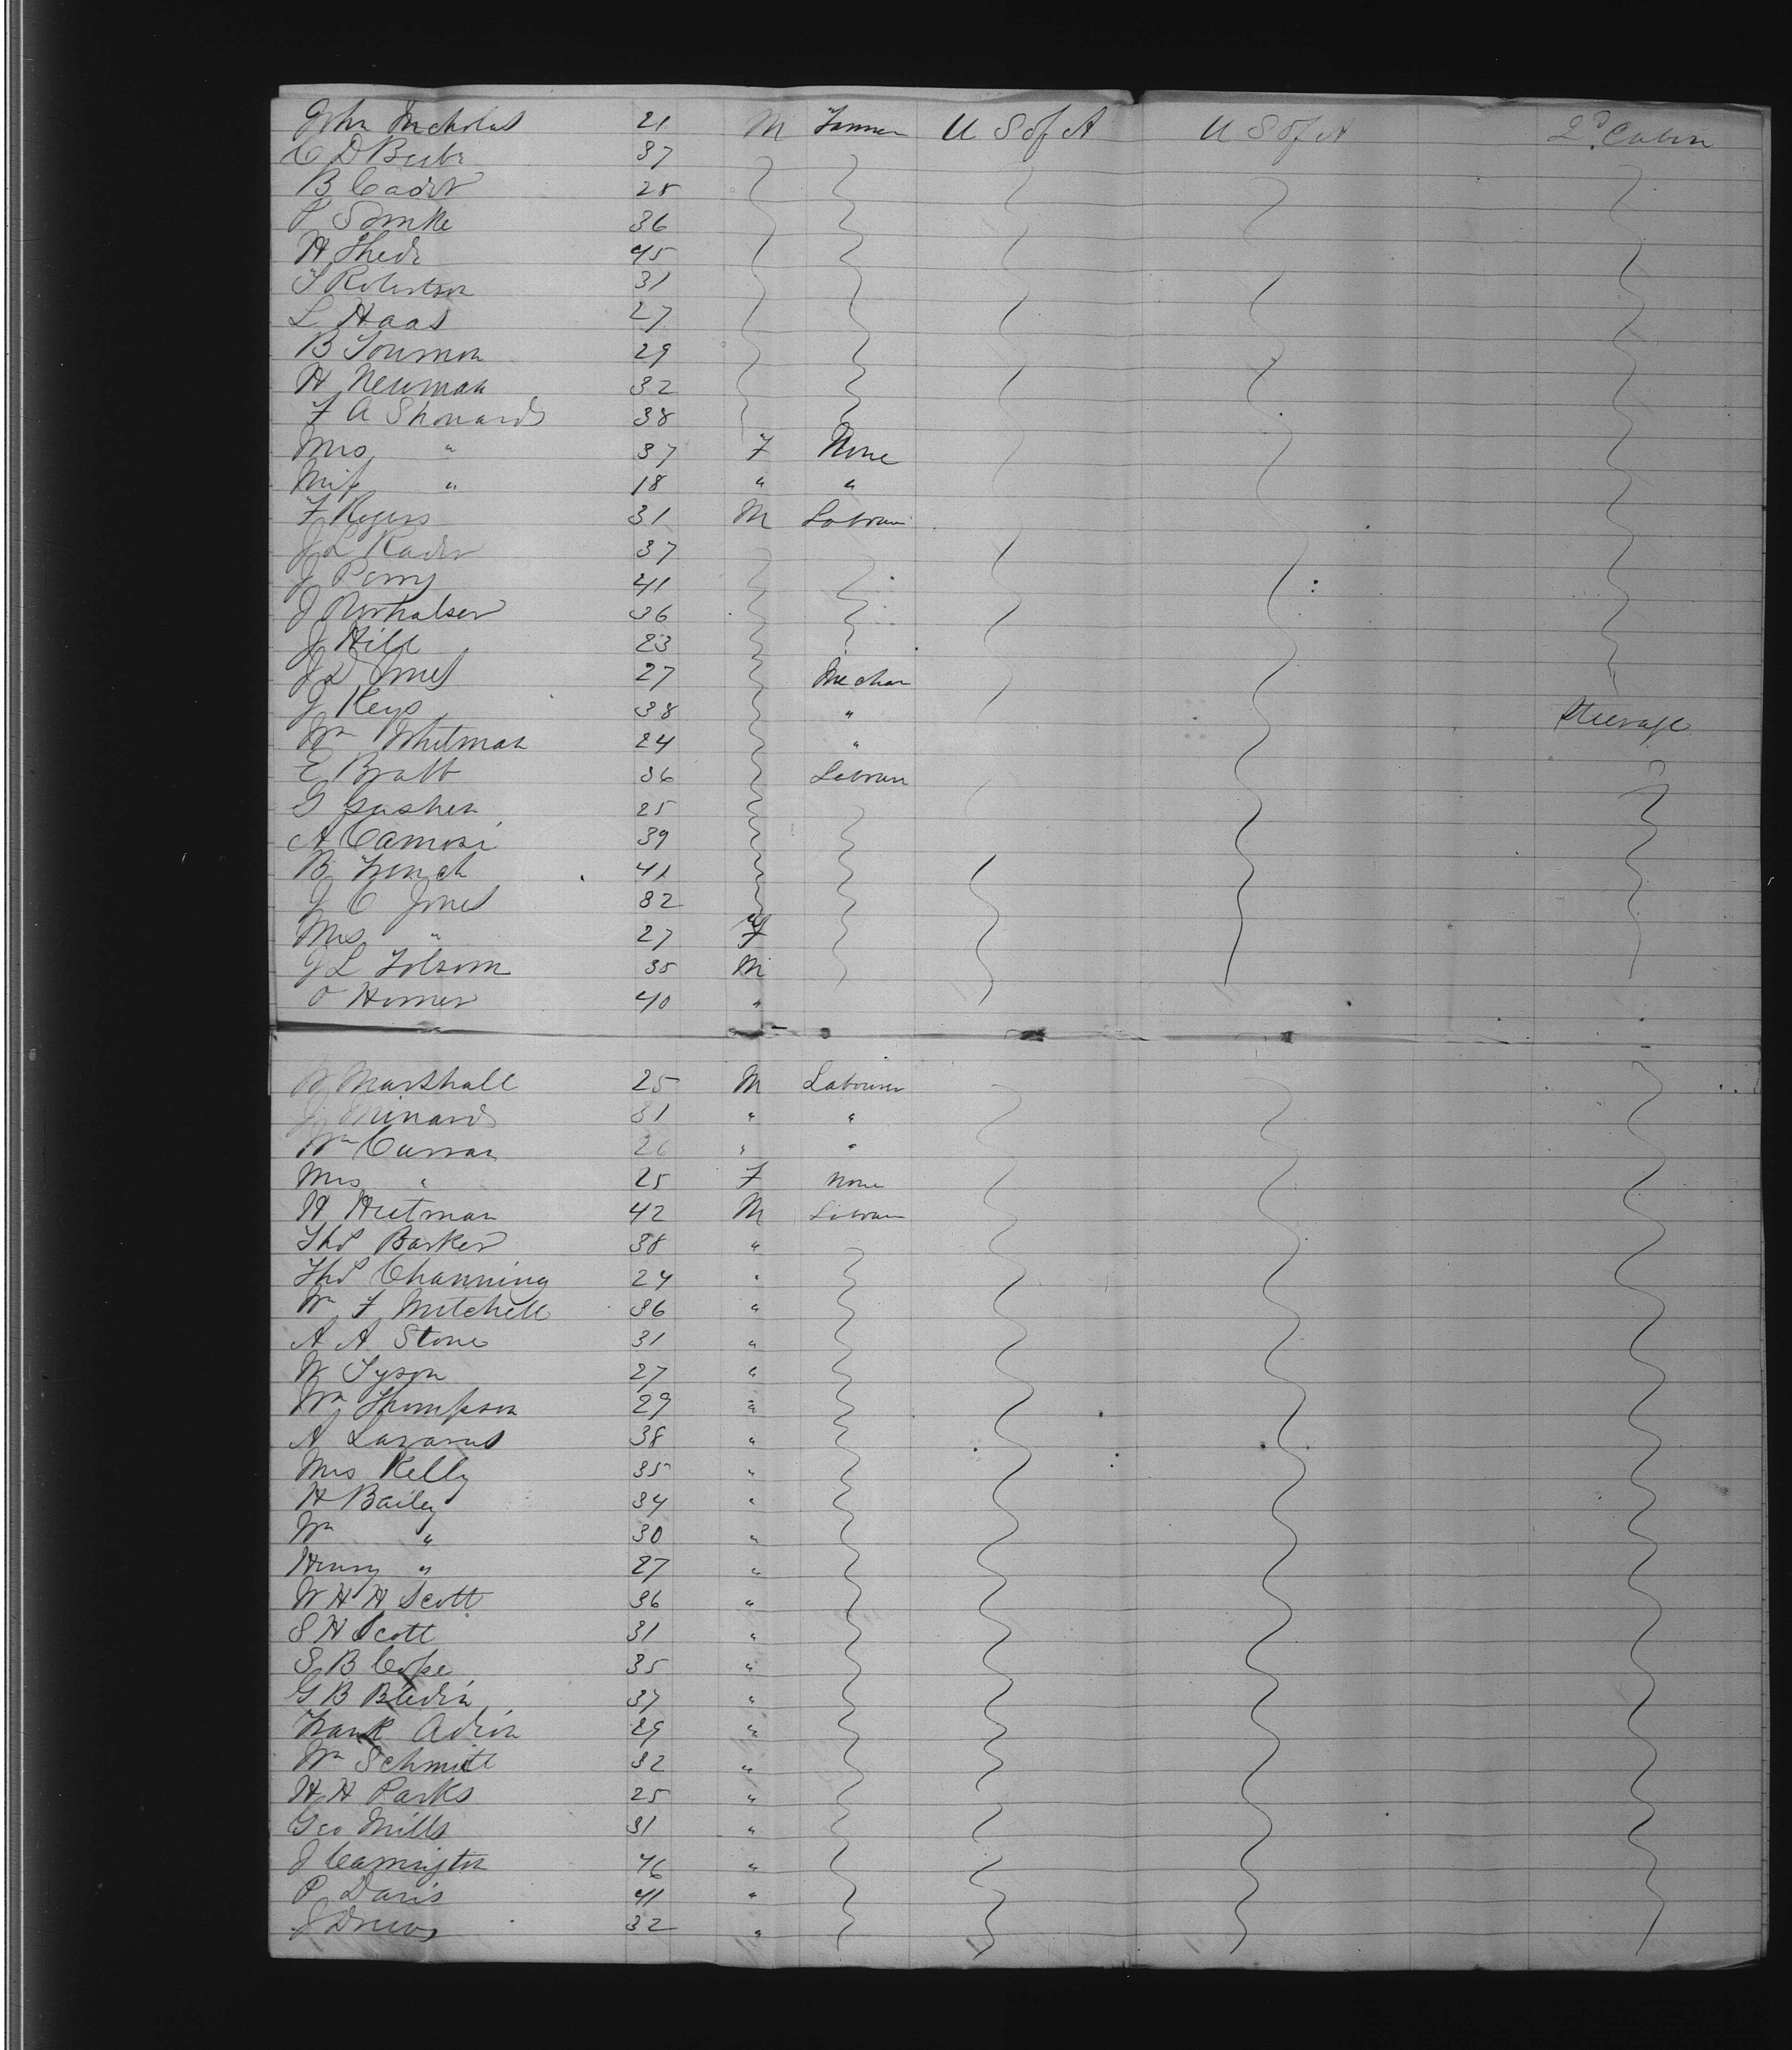 John Nicholas 21 M Farmer U S of A U S of A 2d Cabin
C D Beebe 37
B Cader 28
P Somke 36
H Thede 45
T Robertson 31
L Haas 27
B Tourmon 29
H Neuman 32
F A Shonard 38
Mrs " 37 F None
Miss " 18 " "
F Rogers 31 M Labourer
J L Rader 37
J Perry 41
J 36
J Hill 23
J D Jones 27 Mechan
J Keys 38 " Steerage
Wm Whitman 24 "
E Bratt 36 Labourer
G Gushen 25
A Camosi 39
B French 41
J C Jones 32
Mrs " 27 F
J L Folsom 35 M
O Homer 40 "
W Marshall 25 M Labourer
J Minard 31 " "
Wm Curran 26 " "
Mrs " 25 F None
H Hutman 42 M Labourer
Thos Barker 38 "
Thos Channing 24 "
Wm F Mitchell 36 "
A A Stone 31 "
W Tyson 27 "
Wm Thompson 29 "
A Lazarus 38 "
Mrs Kelly 35 "
H Bailey 34 "
Wm " 30 "
Henry " 27 "
W H H Scott 36 "
S H Scott 31 "
S B Cope 35 "
G B Bledin 37 "
Frank Adion 29 "
Wm Schmitt 32 "
H H Parks 25 "
Geo Mills 31 "
J Carrington 46 "
P Davis 41 "
J Drew 32 "